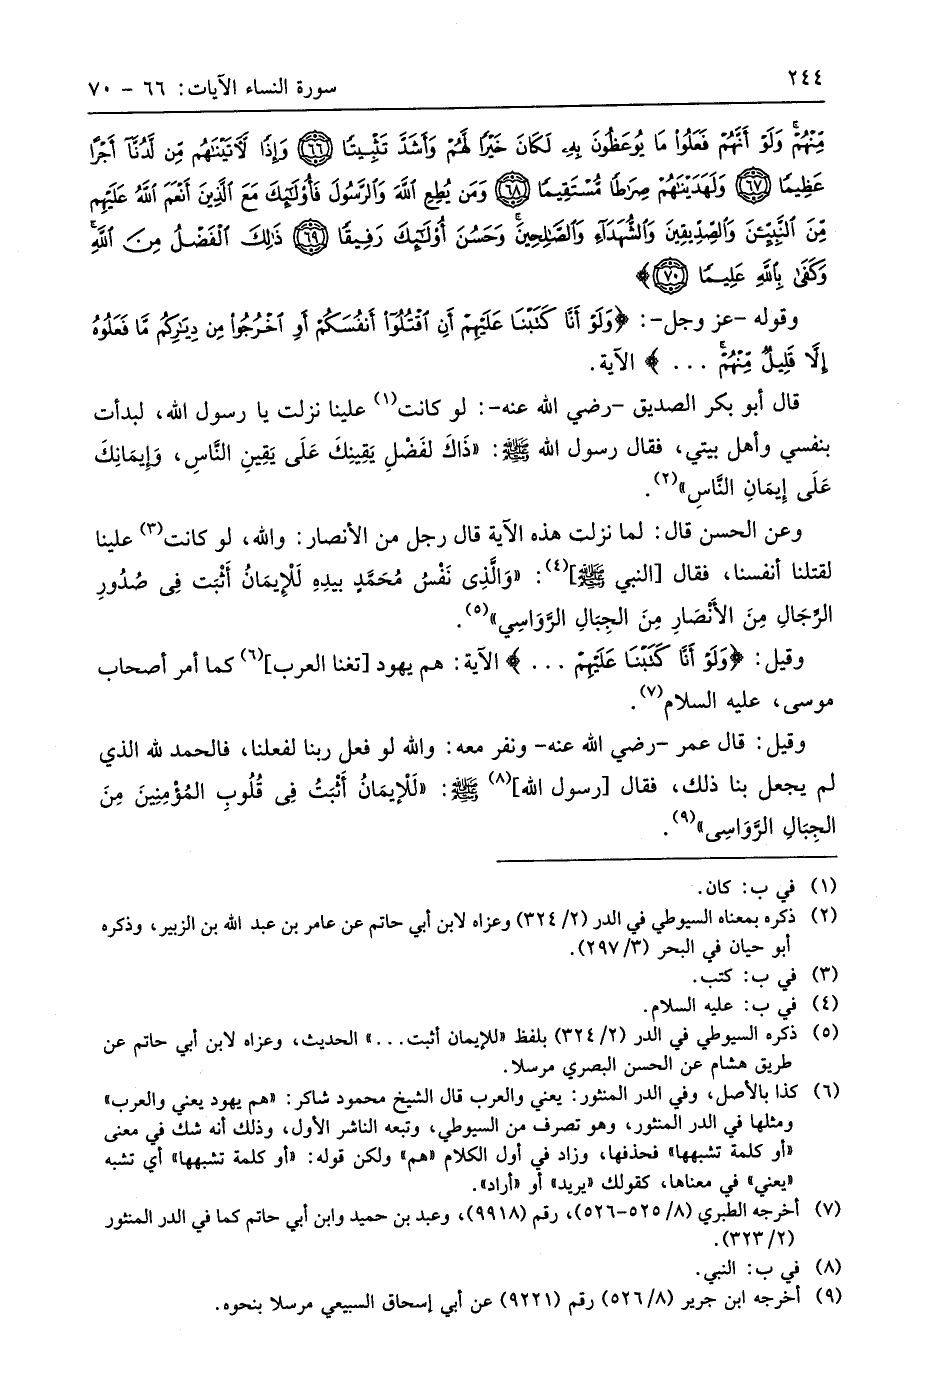 ٢٤٤
سورة النساء الآيات: ٦٦ - ٧٠
مِّنْهُمْ وَلَوْ أَنَّهُمْ فَعَلُوا۟ مَا يُوعَظُونَ بِهِۦ لَكَانَ خَيْرًا لَّهُمْ وَأَشَدَّ تَثْبِيتًا ٦٦ وَإِذًا لَّآتَيْنَٰهُم مِّن لَّدُنَّآ أَجْرًا
عَظِيمًا ٦٧ وَلَهَدَيْنَٰهُمْ صِرَٰطًا مُّسْتَقِيمًا ٦٨ وَمَن يُطِعِ ٱللَّهَ وَٱلرَّسُولَ فَأُو۟لَٰٓئِكَ مَعَ ٱلَّذِينَ أَنْعَمَ ٱللَّهُ عَلَيْهِم
مِّنَ ٱلنَّبِيِّۦنَ وَٱلصِّدِّيقِينَ وَٱلشُّهَدَآءِ وَٱلصَّٰلِحِينَ وَحَسُنَ أُو۟لَٰٓئِكَ رَفِيقًا ٦٩ ذَٰلِكَ ٱلْفَضْلُ مِنَ ٱللَّهِ
وَكَفَىٰ بِٱللَّهِ عَلِيمًا ٧٠﴾
وقوله -عز وجل-: ﴿وَلَوْ أَنَّا كَتَبْنَا عَلَيْهِمْ أَنِ ٱقْتُلُوٓا۟ أَنفُسَكُمْ أَوِ ٱخْرُجُوا۟ مِن دِيَٰرِكُم مَّا فَعَلُوهُ
إِلَّا قَلِيلٌ مِّنْهُمْ ... ﴾ الآية.
قال أبو بكر الصديق -رضي الله عنه-: لو كانت(١) علينا نزلت يا رسول الله، لبدأت
بنفسي وأهل بيتي، فقال رسول الله ﷺ: «ذَاكَ لفَضْلِ يَقِينِكَ عَلَى يَقِينِ النَّاسِ، وَإِيمَانِكَ
عَلَى إِيمَانِ النَّاسِ»(٢).
وعن الحسن قال: لما نزلت هذه الآية قال رجل من الأنصار: والله، لو كانت(٣) علينا
لقتلنا أنفسنا، فقال [النبي ﷺ](٤): «وَالَّذِى نَفْسُ مُحَمَّدٍ بيدِهِ لَلْإِيمَانُ أَثْبَت فِى صُدُورِ
الرِّجَالِ مِنَ الأَنْصَارِ مِنَ الجِبَالِ الرَّوَاسِي»(٥).
وقيل: ﴿وَلَوْ أَنَّا كَتَبْنَا عَلَيْهِمْ ... ﴾ الآية: هم يهود [تغنا العرب](٦) كما أمر أصحاب
موسى، عليه السلام(٧).
وقيل: قال عمر -رضي الله عنه- ونفر معه: والله لو فعل ربنا لفعلنا، فالحمد لله الذي
لم يجعل بنا ذلك، فقال [رسول الله](٨) ﷺ: «لَلْإِيمَانُ أَثْبَتُ فِى قُلُوبِ المُؤْمِنِينَ مِنَ
الجِبَالِ الرَّوَاسِى»(٩).
(١) في ب: كان.
(٢) ذكره بمعناه السيوطي في الدر (٢/ ٣٢٤) وعزاه لابن أبي حاتم عن عامر بن عبد الله بن الزبير، وذكره
أبو حيان في البحر (٣/ ٢٩٧).
(٣) في ب: كتب.
(٤) في ب: عليه السلام.
(٥) ذكره السيوطي في الدر (٢/ ٣٢٤) بلفظ «للإيمان أثبت...» الحديث، وعزاه لابن أبي حاتم عن
طريق هشام عن الحسن البصري مرسلا.
(٦) كذا بالأصل، وفي الدر المنثور: يعني والعرب قال الشيخ محمود شاكر: «هم يهود يعني والعرب»
ومثلها في الدر المنثور، وهو تصرف من السيوطي، وتبعه الناشر الأول، وذلك أنه شك في معنى
«أو كلمة تشبهها» فحذفها، وزاد في أول الكلام «هم» ولكن قوله: «أو كلمة تشبهها» أي تشبه
«يعني» في معناها، كقولك «يريد» أو «أراد».
(٧) أخرجه الطبري (٨/ ٥٢٥-٥٢٦)، رقم (٩٩١٨)، وعبد بن حميد وابن أبي حاتم كما في الدر المنثور
(٢/ ٣٢٣).
(٨) في ب: النبي.
(٩) أخرجه ابن جرير (٨/ ٥٢٦) رقم (٩٢٢١) عن أبي إسحاق السبيعي مرسلا بنحوه.